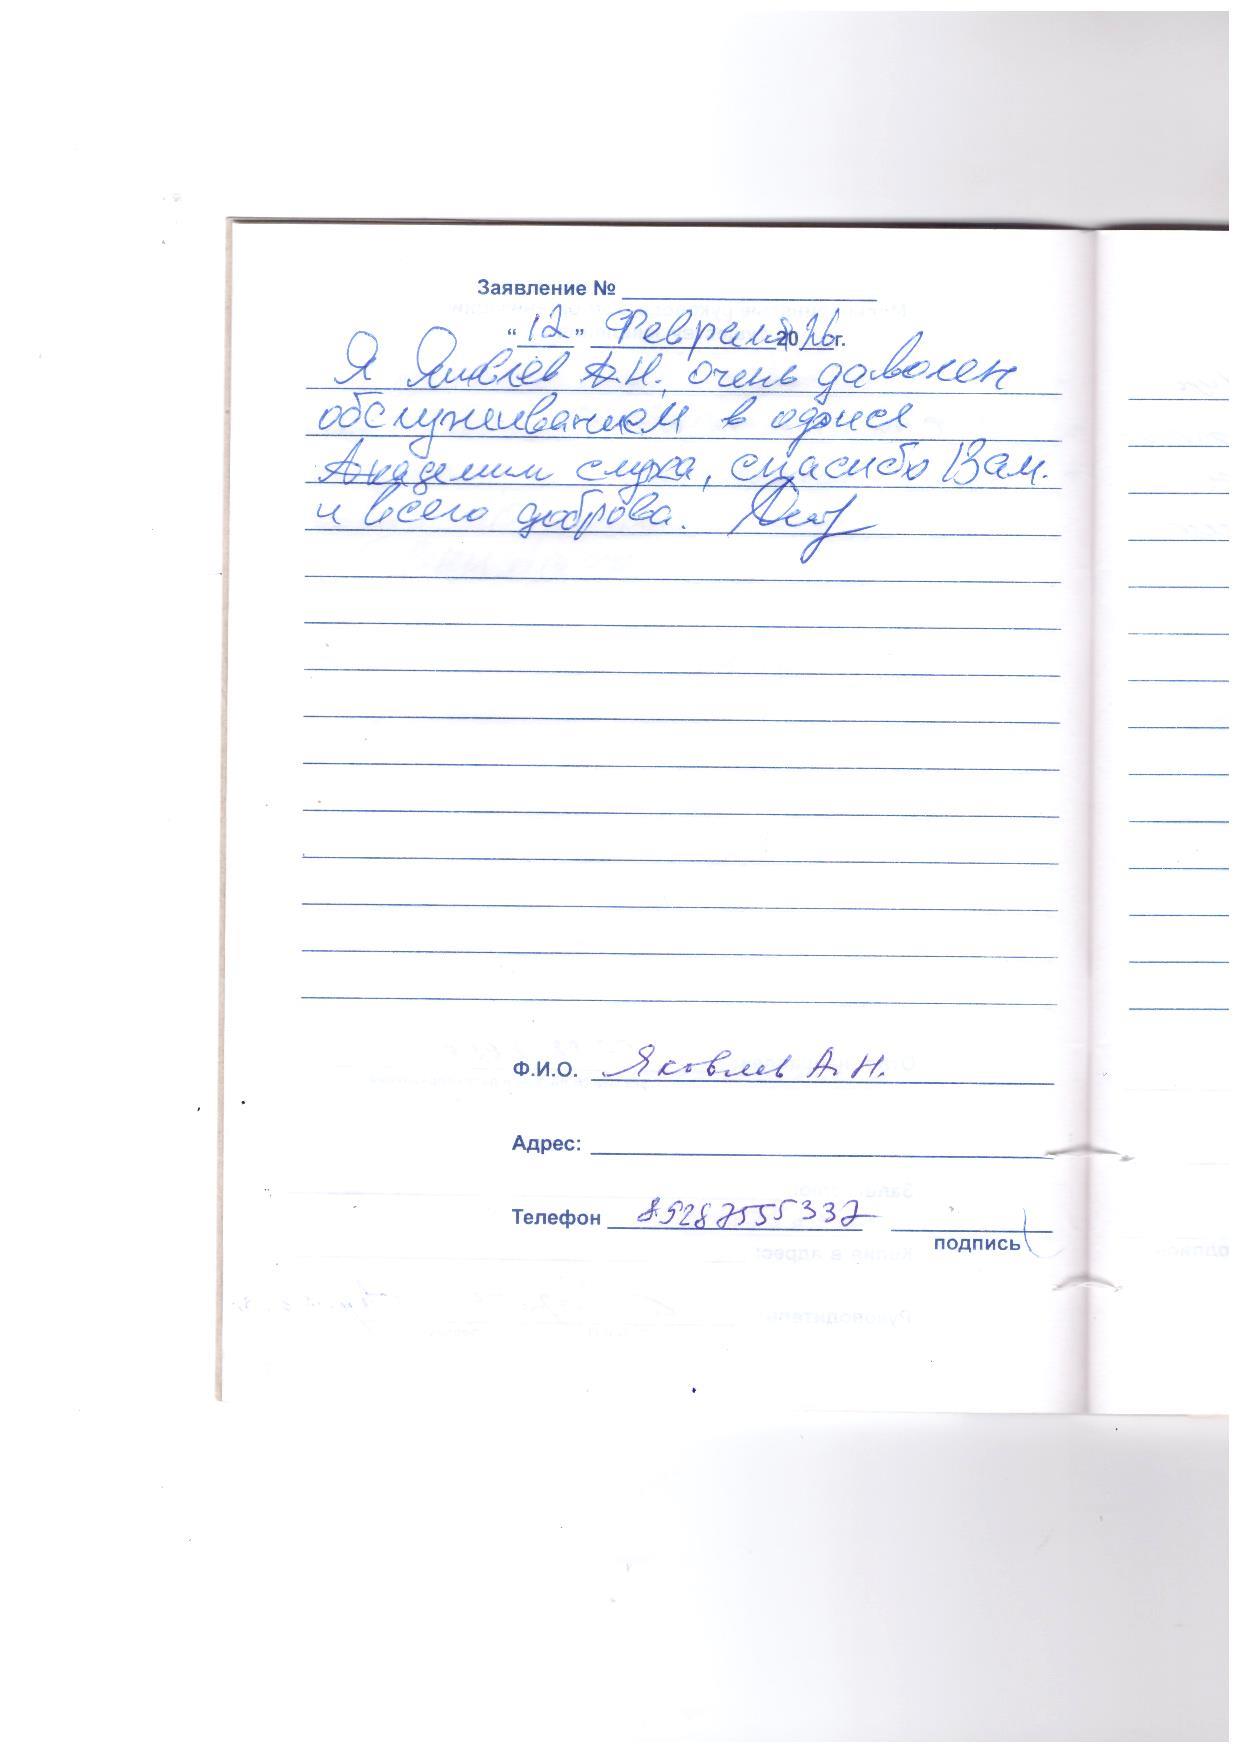 Заявление №
“ 12 ” Февраля 20 26 г.
Я Яковлев А.Н. очень даволен
обслуживанием в офисе
Академии слуха, спасибо Вам.
и всего доброва.
Ф.И.О. Яковлев А. Н.
Адрес:
Телефон 89287555337
подпись